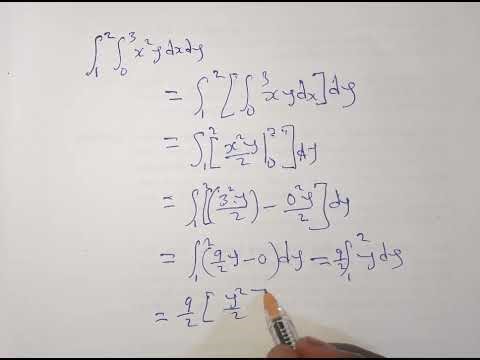 ∫₁² ∫₀³ x²y dx dy
= ∫₁² [ ∫₀³ xy dx ] dy
= ∫₁² [ x²y/2 |₀³ ] dy
= ∫₁² [ (3²y/2) − 0²y/2 ] dy
= ∫₁² (9/2 y − 0) dy = 9/2 ∫₁² y dy
= 9/2 [ y²/2